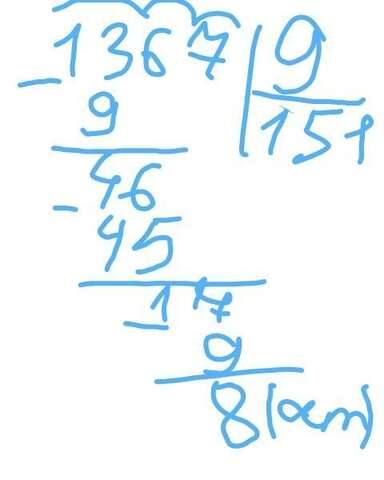 1367 9
- 9 151
46
- 45
17
- 9
8 (ост)